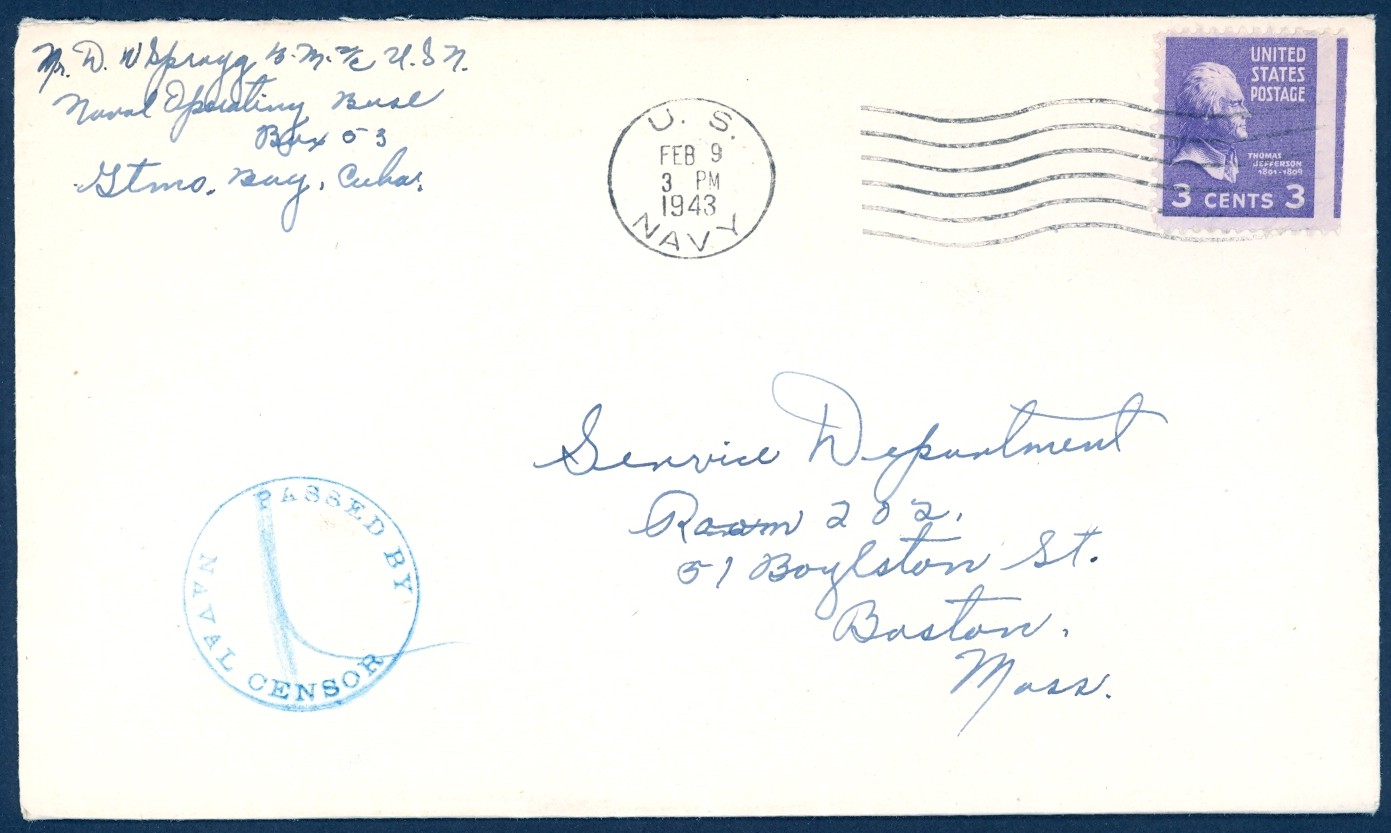 Mr. D. W Spragg B.M. 2/c U.S N.
Naval Operating Base
Box 53
Gtmo. Bay, Cuba.
U. S.
FEB 9
3 PM
1943
NAVY
UNITED
STATES
POSTAGE
THOMAS
JEFFERSON
1801-1809
3 CENTS 3
Service Department
Room 202.
51 Boylston St.
Boston.
Mass.
PASSED BY
NAVAL CENSOR